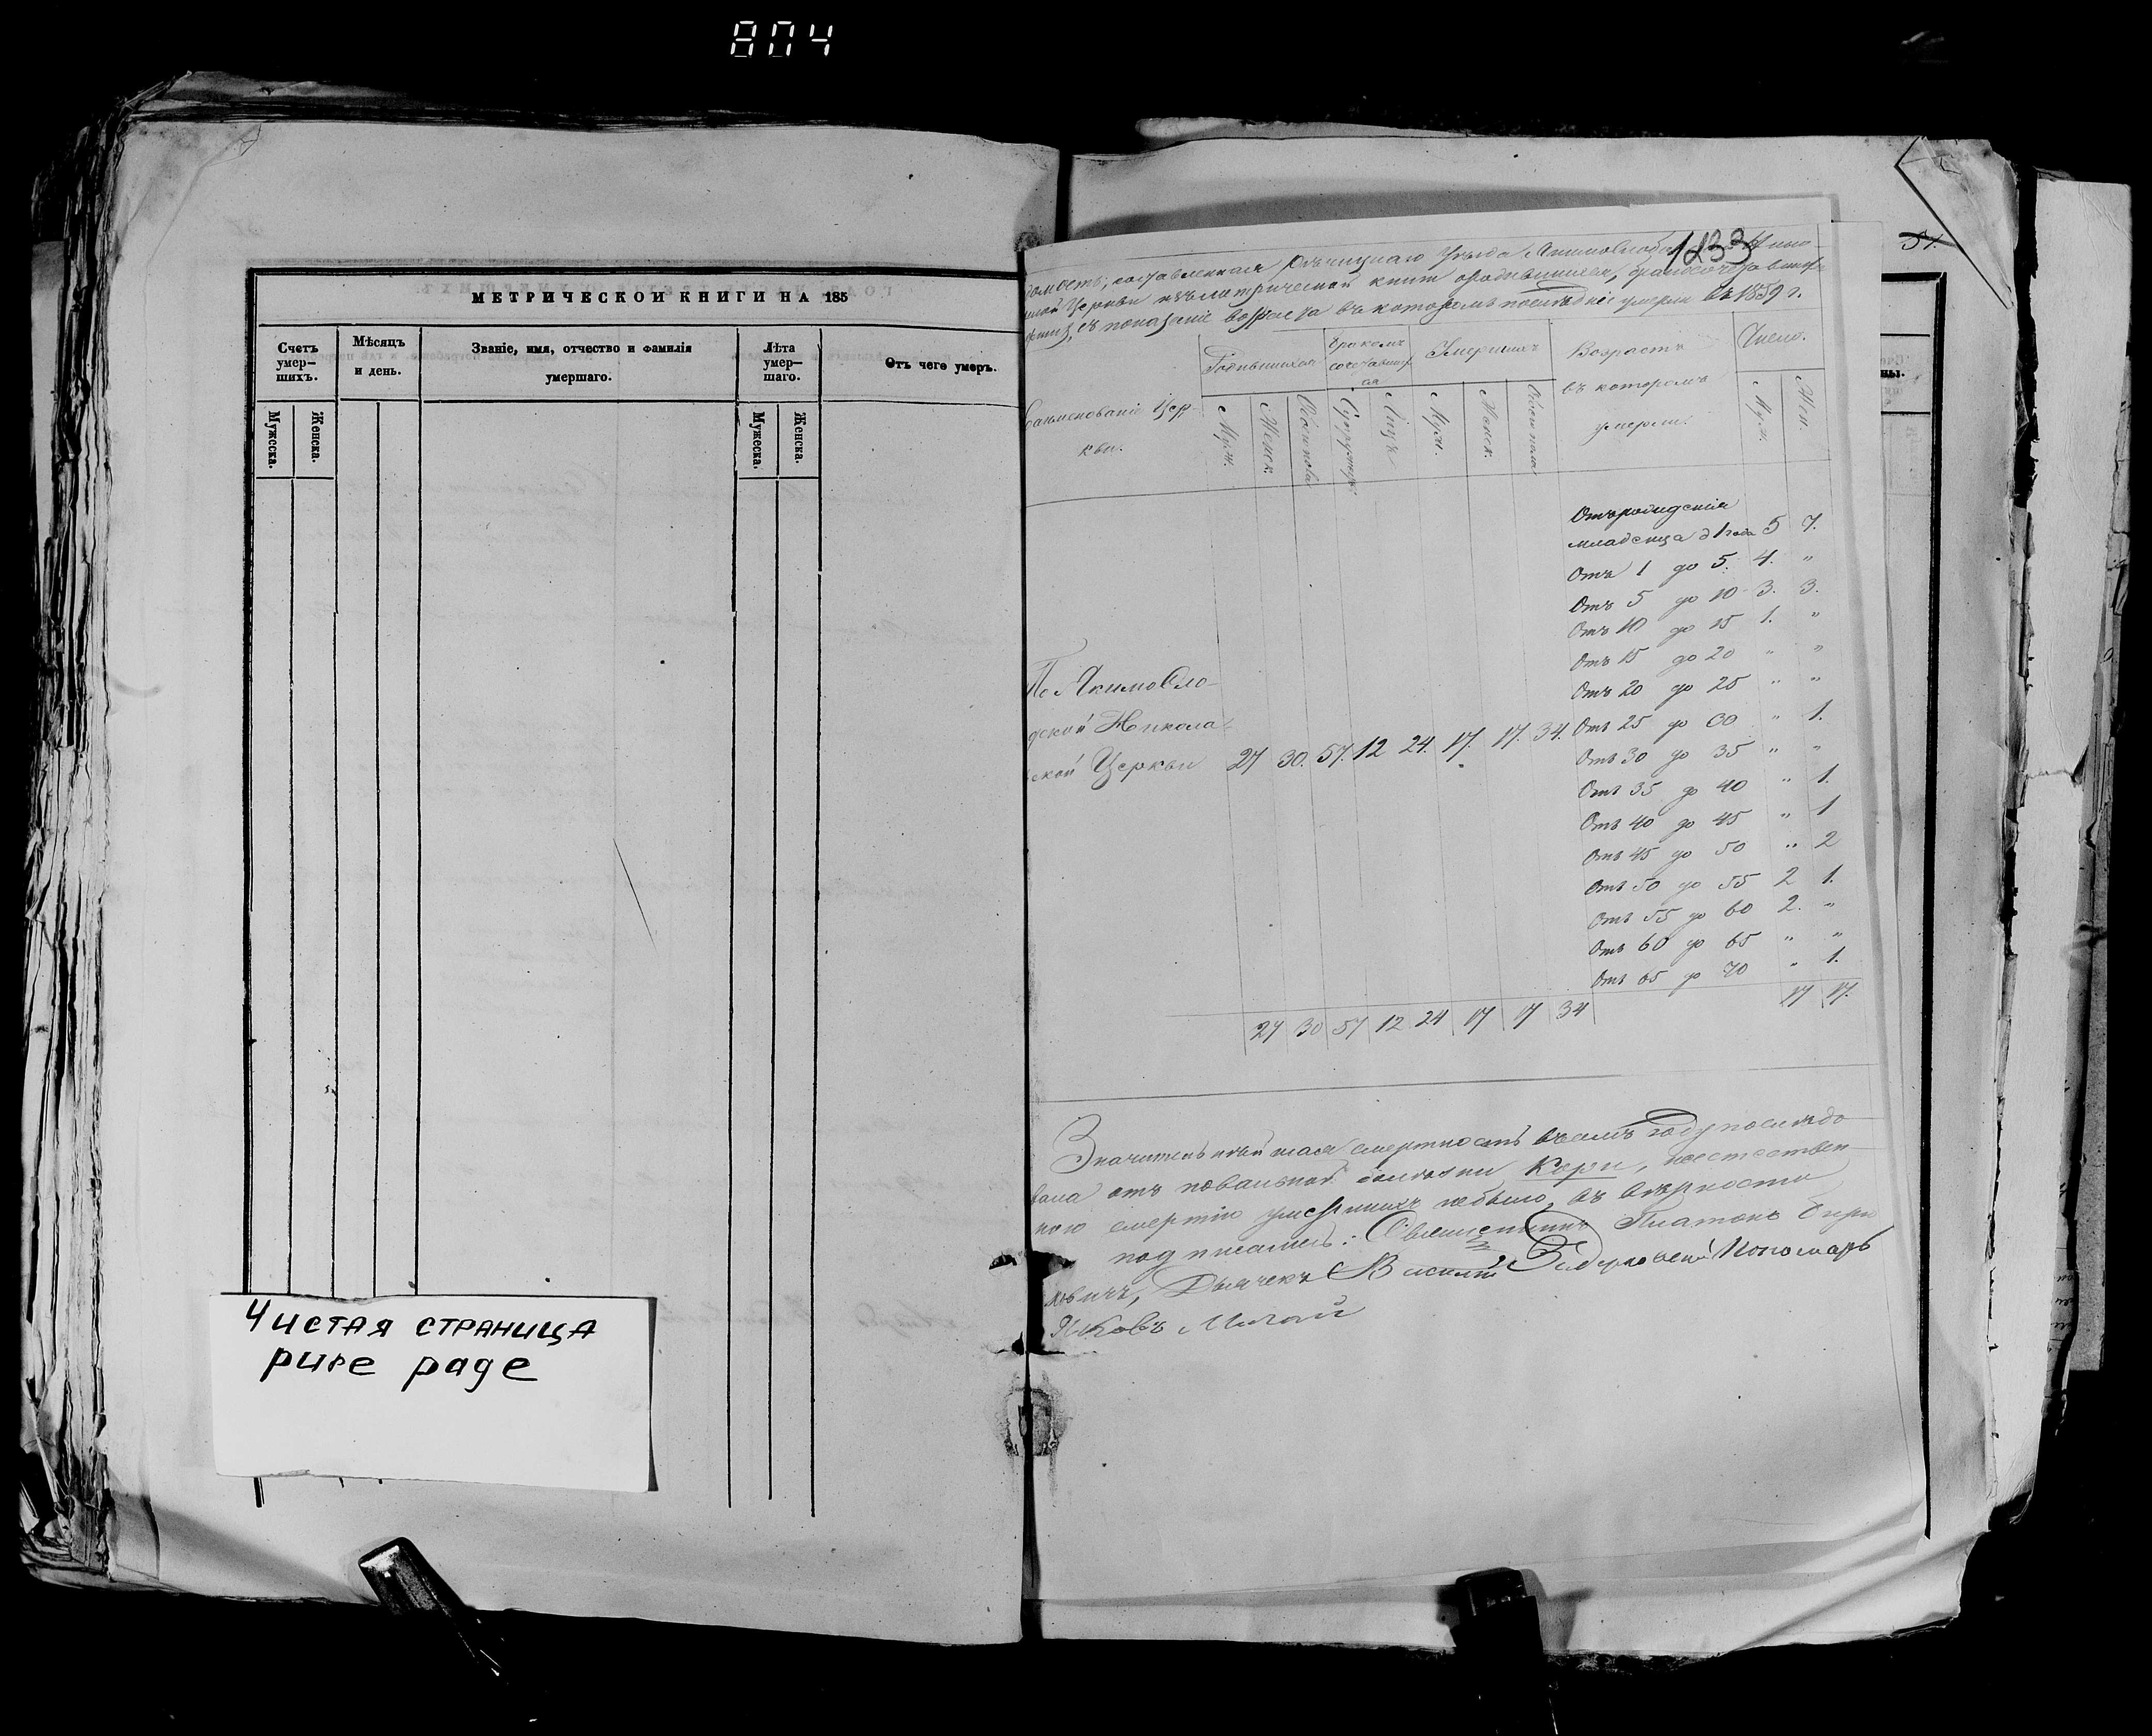 804
МЕТРИЧЕСКОЙ КНИГИ НА 185
Счетъ умер-шихъ.
Мѣсяцъ и день.
Званіе, имя, отчество и фамилія умершаго.
Лѣта умер-шаго.
Отъ чего умеръ.
Мужеска.
Женска.
Мужеска.
Женска.
Чистая страница
pure page
1233
51.
ны.
домость, составленная Рѣчицкаго Уѣзда
Церкви изъ метрической книги о родившихся,
съ показаніе возраста въ которомъ послѣдніе умерли въ 1859 г.
Наименованіе Цер-
кви.
Родившихся
бракомъ сочетавших
ся
Умершихъ
Возрастъ
въ которомъ
умерли.
Число.
Муж.
Женск.
Обоих пола
Супружес
Лицъ
Муж.
Женск.
Обоих пола
Муж.
Жен.
Отъ рожденія
младенца д 1 года 5 7.
Отъ 1 до 5. 4. "
Отъ 5 до 10 3. 3.
Отъ 10 до 15 1. "
Отъ 15 до 20 " "
Отъ 20 до 25 " "
Отъ 25 до 30 " 1.
Отъ 30 до 35 " "
Отъ 35 до 40 " 1.
Отъ 40 до 45 " 1
Отъ 45 до 50 " 2
Отъ 50 до 55 2 1.
Отъ 55 до 60 2. "
Отъ 60 до 65 " "
Отъ 65 до 70 " 1.
17 17.
По Акимовсло-
дской Никола
ской Церкви 27 30. 57. 12 24. 17. 17. 34.
27 30 57 12 24 17 17 34
Значительнѣйшая смертность въ семъ году послѣдо
вала отъ повальной болѣзни Кори, неестествен
ною смертію умершихъ небыло, въ вѣрности
подписались: Священникъ Платонъ
Дьячекъ Василій Пономарь
Яковъ